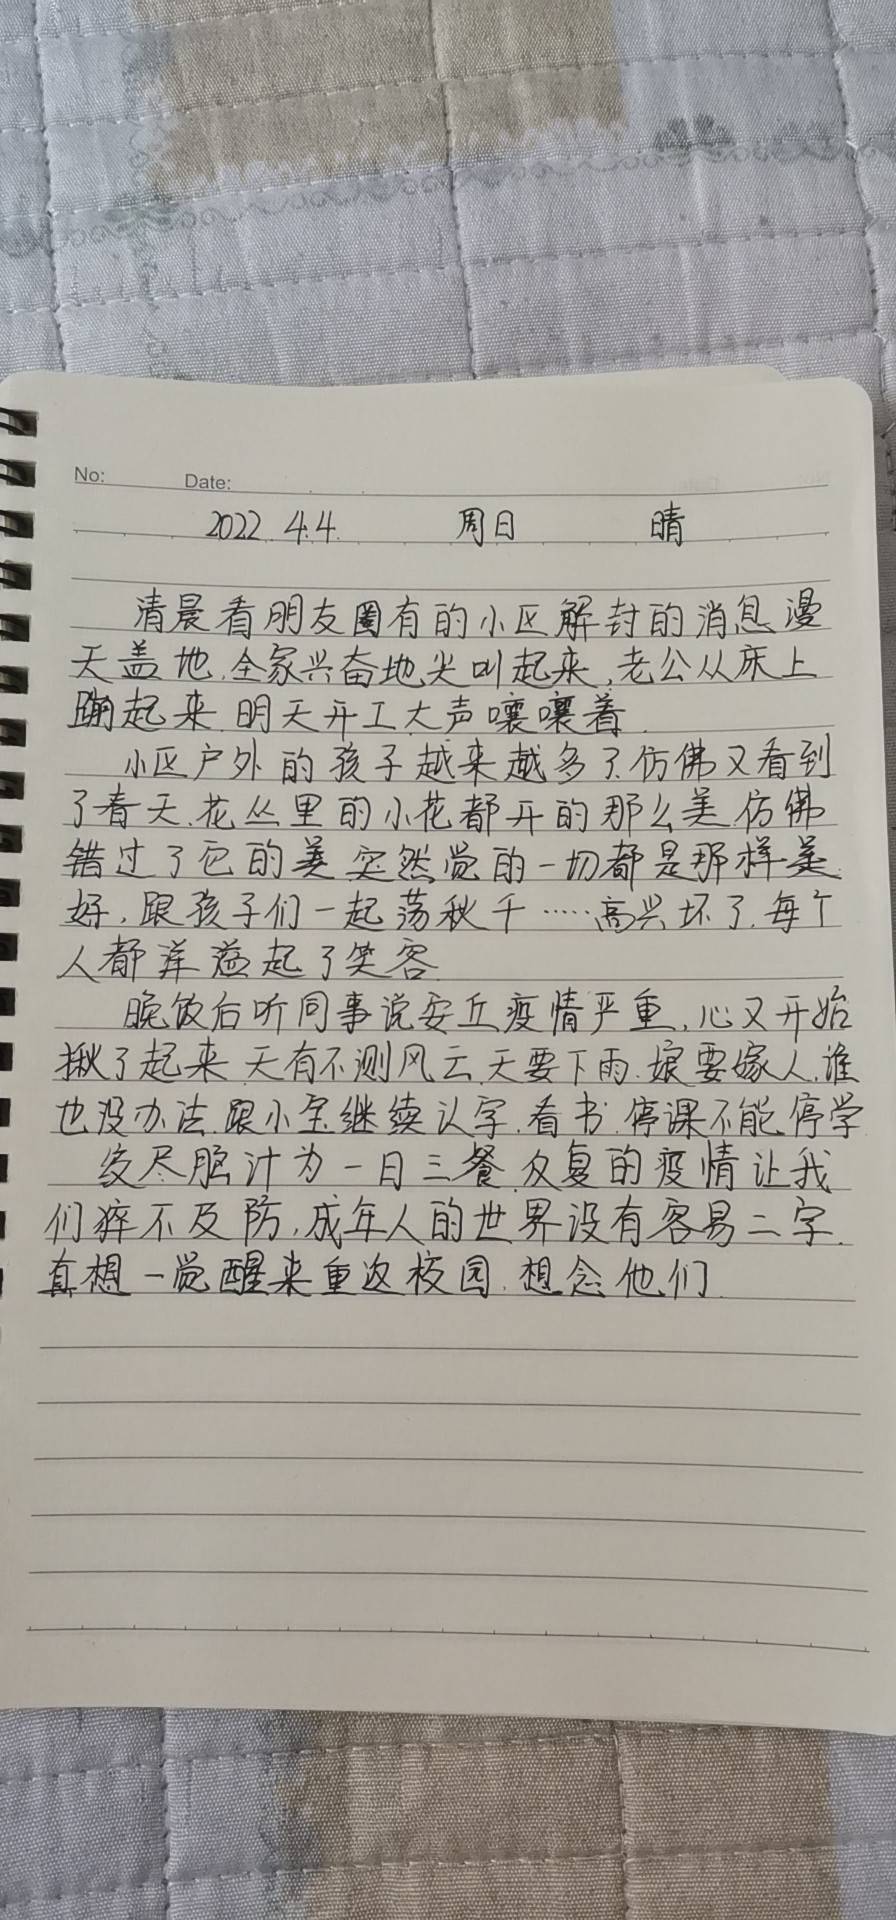 No: Date:
2022.4.4. 周日 晴
清晨看朋友圈有的小区解封的消息漫
天盖地,全家兴奋地尖叫起来,老公从床上
蹦起来.明天开工大声嚷嚷着.
小区户外的孩子越来越多了.仿佛又看到
了春天.花丛里的小花都开的那么美.仿佛
错过了它的美.突然觉的一切都是那样美
好,跟孩子们一起荡秋千……高兴坏了.每个
人都洋溢起了笑容.
晚饭后听同事说安丘疫情严重,心又开始
揪了起来.天有不测风云.天要下雨.娘要嫁人.谁
也没办法.跟小宝继续认字.看书.停课不能停学
绞尽脑汁为一日三餐.反复的疫情让我
们猝不及防,成年人的世界没有容易二字.
真想一觉醒来重返校园.想念他们.